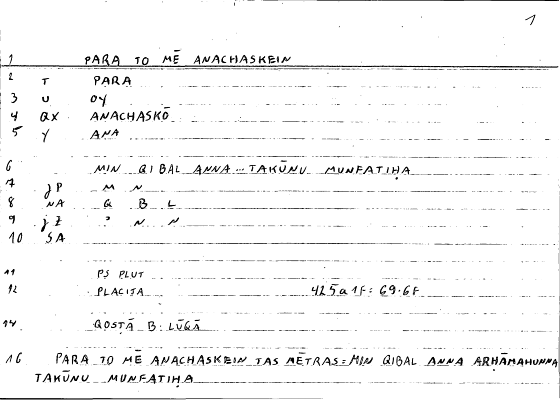 1
1 PARA TO MĒ ANACHASKEIN
2 T PARA
3 U OY
4 QX ANACHASKŌ
5 Y ANA
6 MIN QIBAL ANNA...TAKŪNU MUNFATIḤA
7 jP M N
8 NA Q B L
9 jZ ' N N
10 SA
11 PS PLUT
12 PLACITA 425a1f: 69.6f
14 QOSṬĀ B. LŪQĀ
16 PARA TO MĒ ANACHASKEIN TAS MĒTRAS=MIN QIBAL ANNA ARḤĀMAHUNNA
TAKŪNU MUNFATIḤA